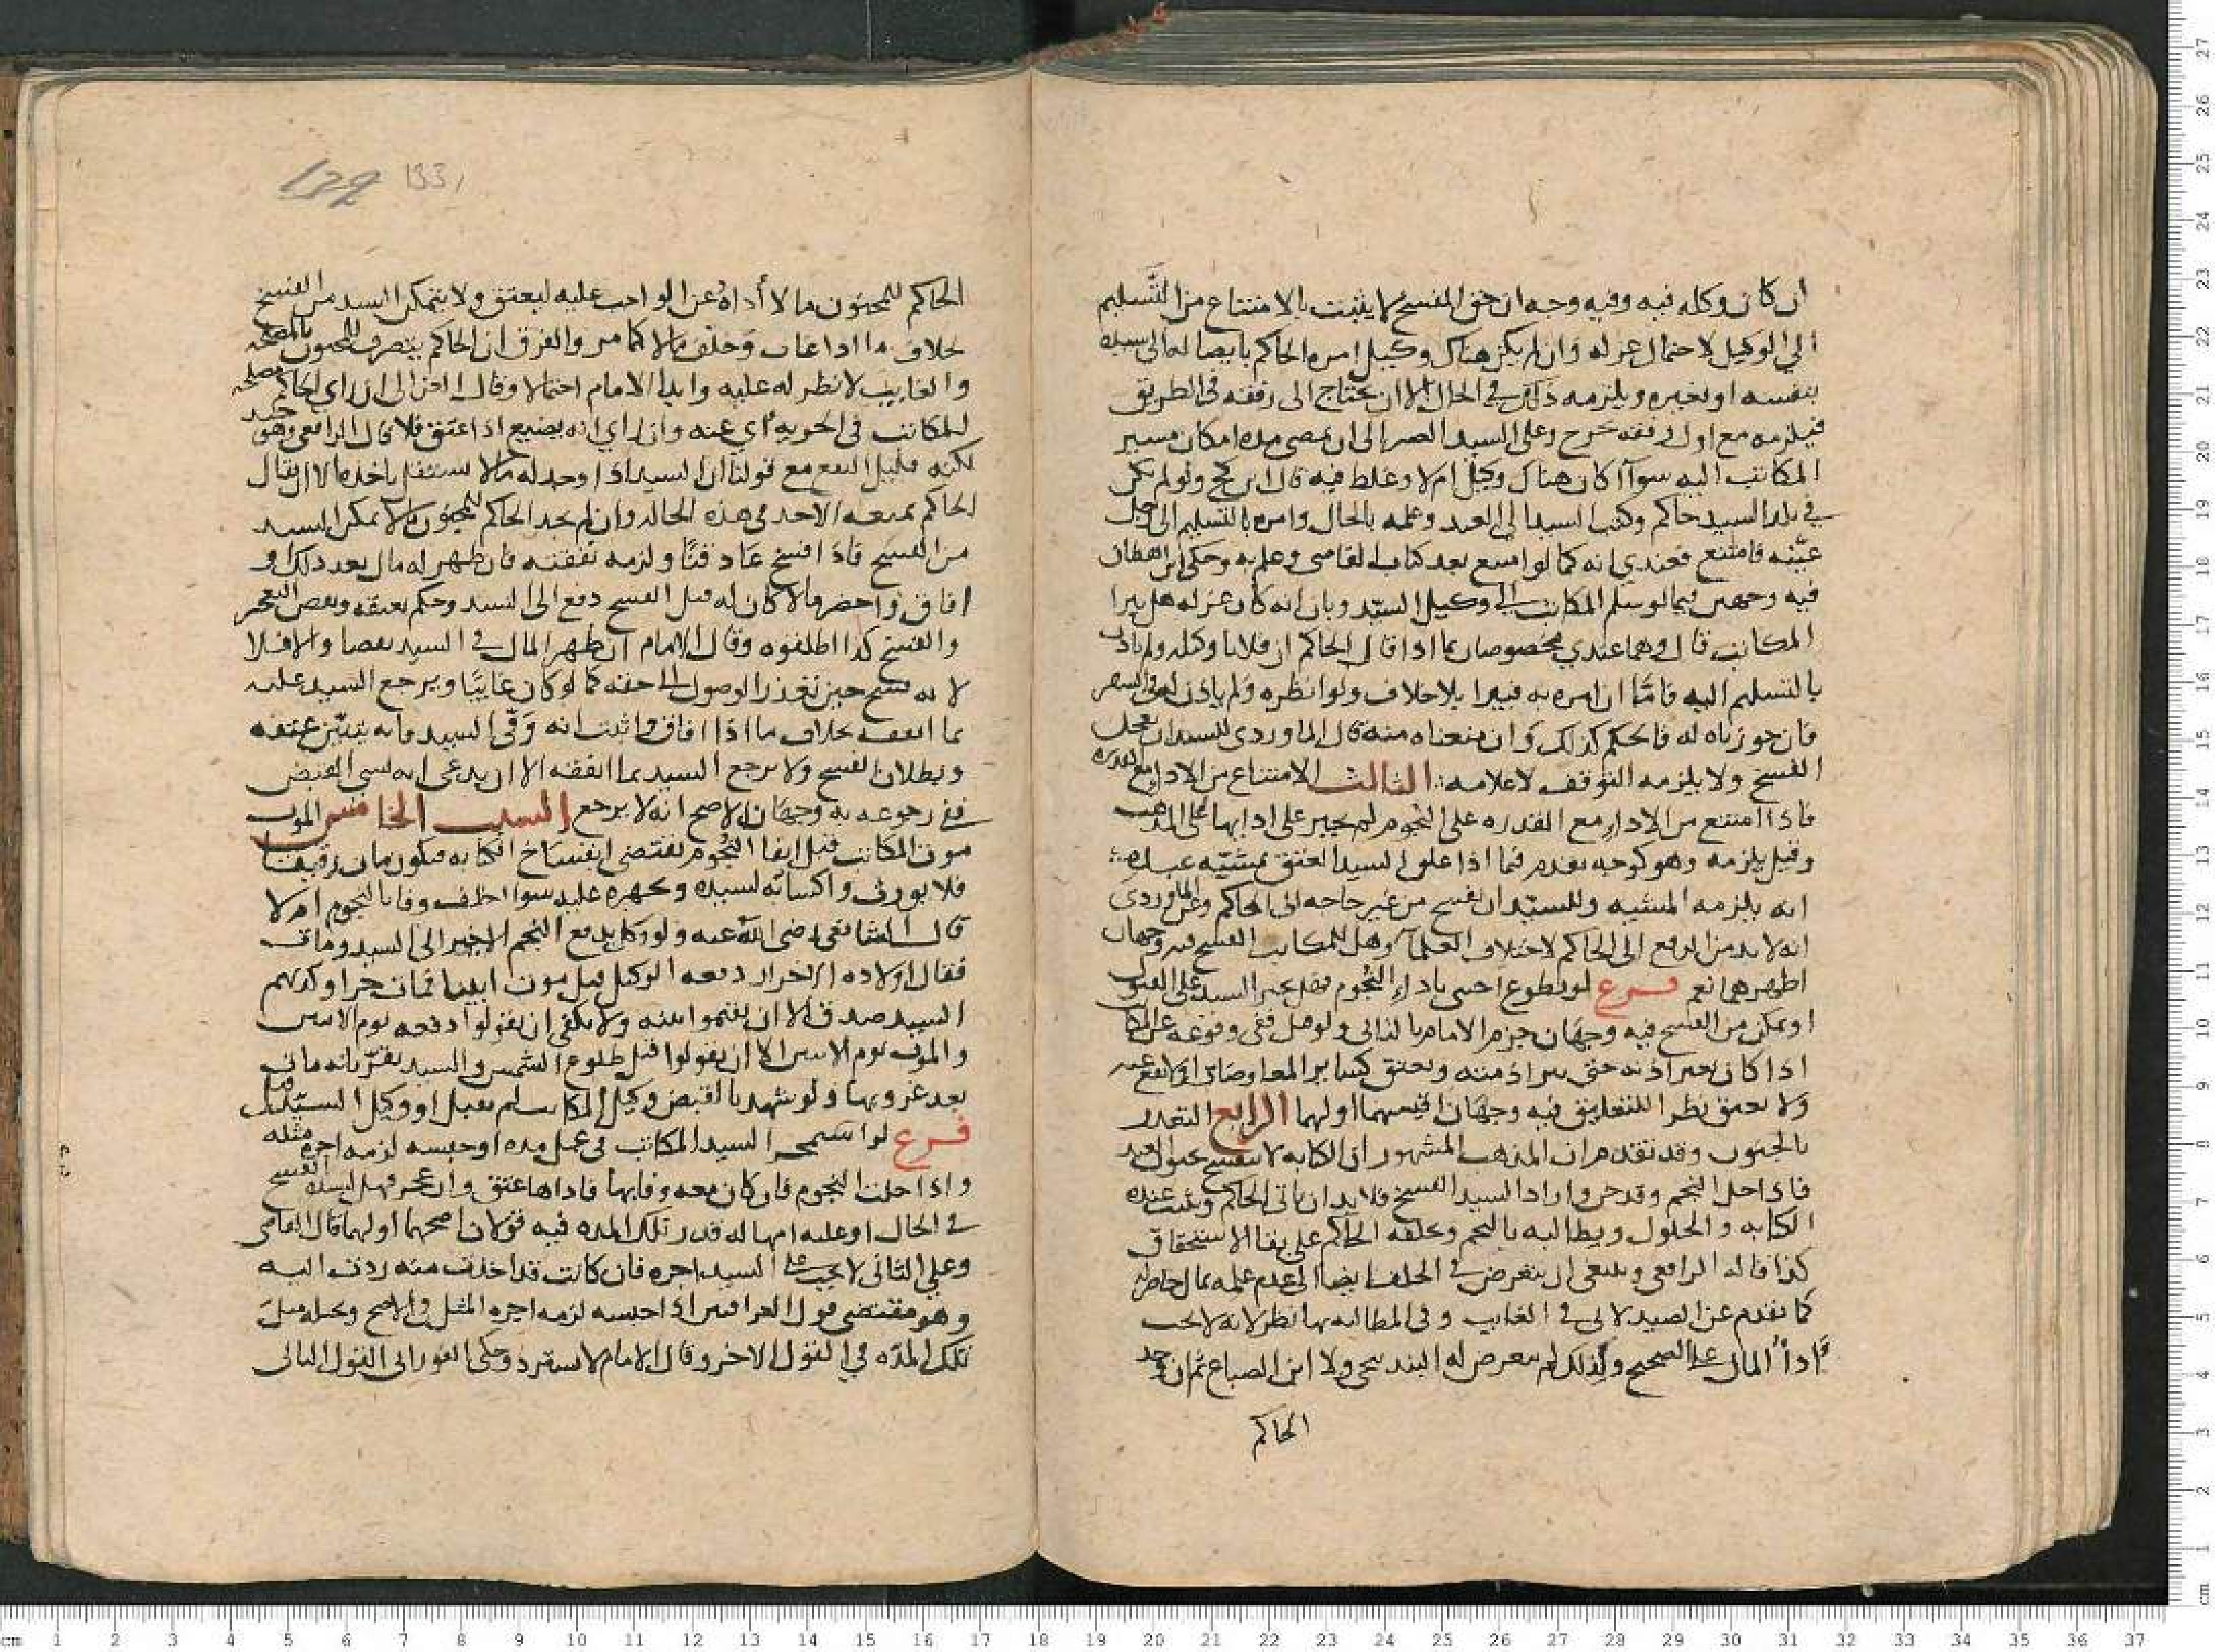 ان كان وكله فيه وفيه وجه ان حق الفسخ لا يثبت بالامتناع من التسليم
الى الوكيل لاحتمال عزله وان لم يكن هناك وكيل امره الحاكم بايصاله الى سيده
بنفسه او بغيره ويلزمه ذلك في الحال الا ان يحتاج الى رفقه في الطريق
فيلزمه مع اول رفقه تخرج وعلى السيد الصبر الى ان تمضى مده امكان مسير
المكاتب اليه سوآا كان هناك وكيل ام لا وغلط فيه قال ابن كج ولو لم يكن
في بلد السيد حاكم وكتب السيد الى العبد وعلمه بالحال وامره بالتسليم الى رجل
عيّنه فامتنع فعندي انه كما لو امتنع بعد كتاب القاضى وعلم به وحكى ابن القطان
فيه وجهين فيما لو سلم المكاتب الى وكيل السيّد وبان انه كان عزله هل يبرا
المكاتب قال وهما عندي مخصوصان بما اذا قال الحاكم ان فلانا وكله ولم ياذن
بالتسليم اليه فامّا ان امره به فيبرا بلا خلاف ولو انظره ولم ياذن له في السفر
فان جوزناه له فالحكم كذلك وان منعناه منه قال الماوردى للسيد ان يعجل
الفسخ ولا يلزمه التوقف لاعلامه الثالث الامتناع من الادا مع القدره
فاذا امتنع من الادا مع القدره على النجوم لم يجبر على ادايها على المذهب
وقيل يلزمه وهو كوجه تقدم فيما اذا علق السيد العتق بمشيّه عبده
انه يلزمه المشيه وللسيّد ان يفسخ من غير حاجه الى الحاكم وعن الماوردى
انه لابد من الرفع الى الحاكم لاختلاف العلمآ وهل للمكاتب الفسخ فيه وجهان
اظهرهما نعم فرع لو تطوع اجنبى باداء النجوم فهل يجبر السيد على القبول
او يمكن من الفسخ فيه وجهان جزم الامام بالثانى ولو قبل ففى وقوعه عن المكاتب
اذا كان بغير اذنه حتى يبرا ذمته ويعتق كساير المعاوضات او لا يقع عنه
ولا يعتق نظرا للتعليق فيه وجهان اقيسهما اولهما الرابع التعذر
بالجنون وقد تقدم ان المذهب المشهور ان الكتابه لا تنفسخ بجنون العبد
فاذا حل النجم وقد جن واراد السيد الفسخ فلابد ان ياتى الحاكم ويثبت عنده
الكتابه والحلول ويطالبه بالنجم ويحلفه الحاكم على بقا الاستحقاق
كذا قاله الرافعى وينبغى ان يتعرض في الحلف ايضا الى عدم علمه بمال حاضر له
كما تقدم عن الصيدلانى في الغايب وفى المطالبه بها نظر لانه لا يجب
ادآ المال على الصحيح وكذلك لم يتعرض له البندنيجى ولا ابن الصباغ ثم ان وجد
الحاكم
133
الحاكم للمجنون مالا أداه عن الواجب عليه ليعتق ولا يتمكن السيد من الفسخ
بخلاف ما اذا غاب وخلف مالا كما مر والفرق ان الحاكم يتصرف للمجنون بالمصلحه
والغايب لا نظر له عليه وابدا الامام احتمالا وقال الغزالى ان راى الحاكم مصلحه
للمكاتب في الحريه أدي عنه وان راى انه يضيع اذا عتق فلا قال الرافعى وهو جيد
لكنه قليل النفع مع قولنا ان السيد اذا وجد له مالا يستقل باخذه الا ان يقال
الحاكم يمنعه الاخذ في هذه الحاله وان لم يجد الحاكم للمجنون مالا تمكن السيد
من الفسخ فاذا فسخ عاد قنًا ولزمه نفقته فان ظهر له مال بعد ذلك او
افاق واحضر مالا كان له قبل الفسخ دفع الى السيد وحكم بعتقه ونقض التعجيز
والفسخ كذا اطلقوه وقال الامام ان ظهر المال في يد السيد نقضا والا فلا
لانه فسخ حين تعذر الوصول الى حقه كما لو كان غايبًا ويرجع السيد عليه
بما انفقه بخلاف ما اذا افاق واثبت انه وفّى السيد فانه يتبيّن عتقه
وبطلان الفسخ ولا يرجع السيد بما انفقه الا ان يدعى انه نسى القبض
ففى رجوعه به وجهان الاصح انه لا يرجع السبب الخامس الموت
موت المكاتب قبل ايفا النجوم يقتضى انفساخ الكتابه فيكون مات رقيقا
فلا يورث واكسابه لسيده وتجهيزه عليه سوا اخلف وفا بالنجوم ام لا
قال الشافعى رضى الله عنه ولو وكل بدفع النجم الاخير الى السيد ومات
فقال اولاده الاحرار دفعه الوكيل قبل موت ابينا فمات حرا وكذبهم
السيد صدق الا ان يقيموا بينه ولا يكفى ان يقولوا دفعه يوم الاثنين
والموت يوم الاثنين الا ان يقولوا قبل طلوع الشمس والسيد يقرّ بانه مات
بعد غروبها ولو شهد بالقبض وكيل المكاتب لم يقبل او وكيل السيّد قبل
فرع لو استسخر السيد المكاتب في عمل مده او حبسه لزمه اجره مثله
واذا حلت النجوم فان كان معه وفا بها فاداها عتق وان عجز فهل لسيده الفسخ
في الحال او عليه امهاله قدر تلك المده فيه قولان اصحهما اولهما قال القاضى
وعلى الثانى لا يجب على السيد اجره فان كانت قد اخذت منه ردت اليه
وهو مقتضى قول العراقيين اذا حبسه لزمه اجره المثل في الاصح وتخليه مثل
تلك المدّه في القول الاخر وقال الامام لا يسترد وحكى الفورانى القول الثانى